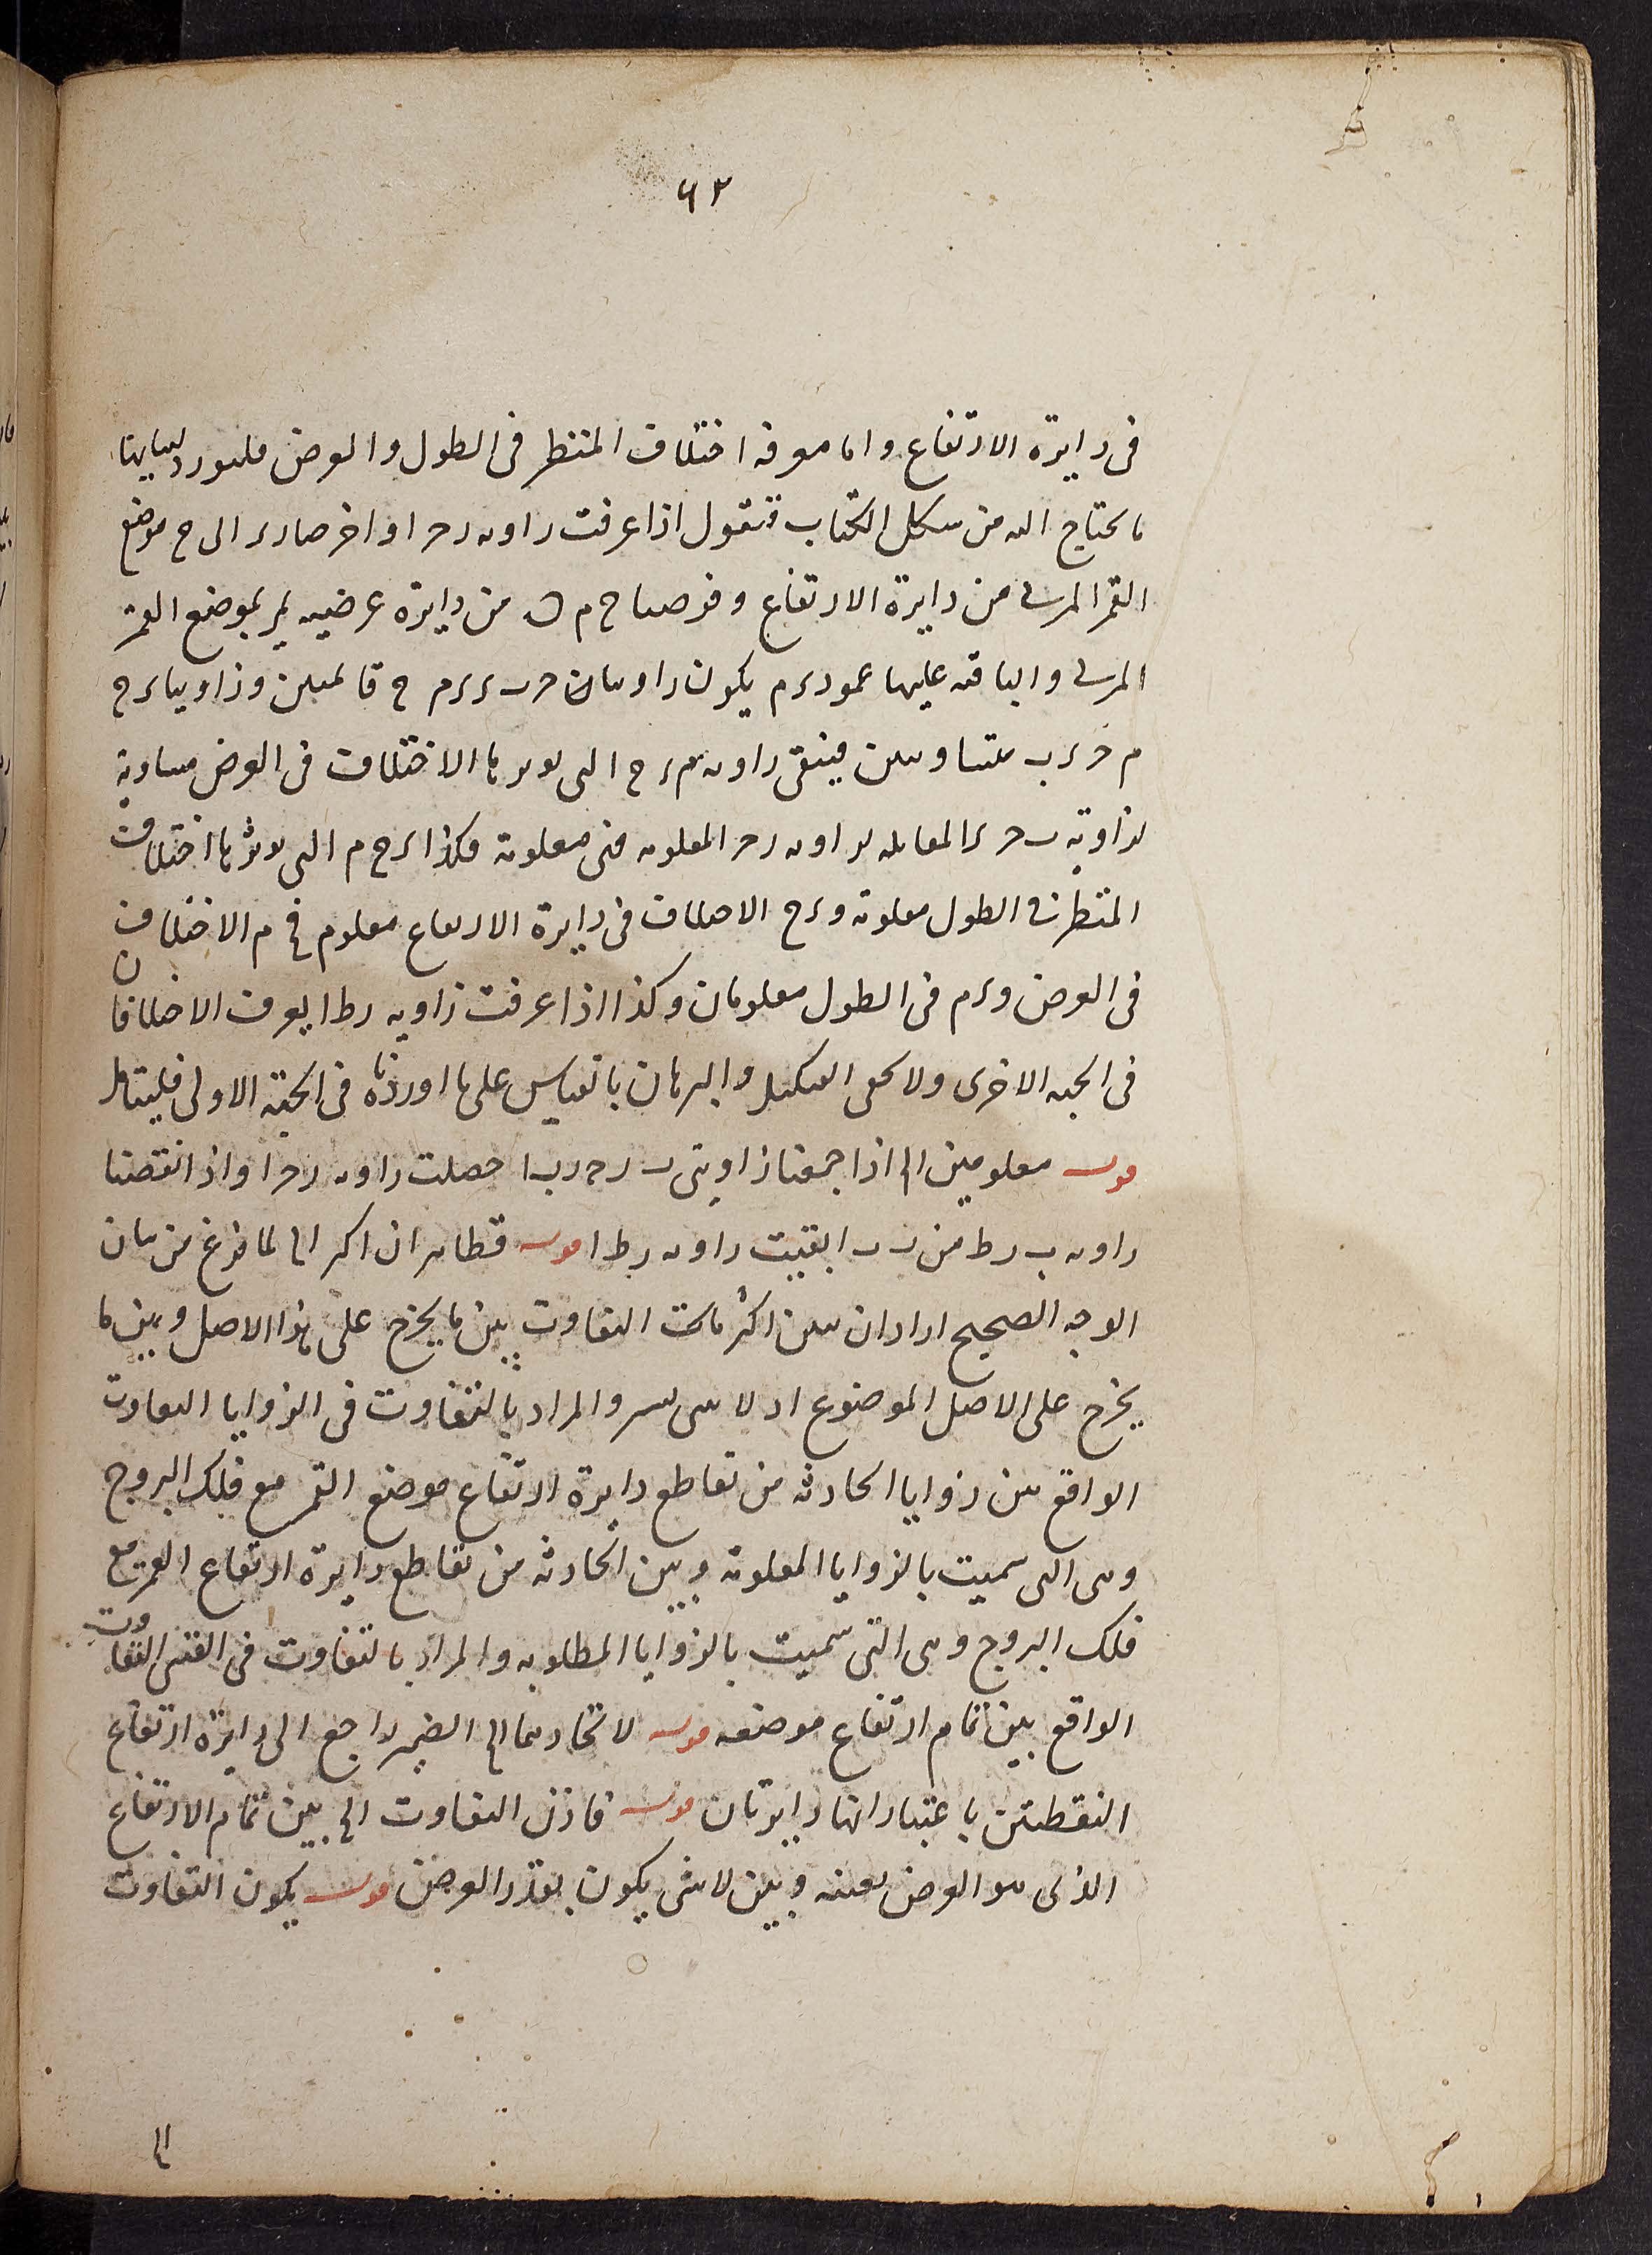 ٦٢
فى دايرة الارتفاع واما معرفة اختلاف المنظر فى الطول والعرض فلنورد لبيانها
ما يحتاج اليه من شكل الكتاب فنقول اذا عرفت زاويه ر ح ا و اخر صار ر الى ح موضع
القمر المرئى من دايرة الارتفاع وفرضنا ح م ں من دايرة عرضيه يمر بموضع القمر
المرئى والباقيه عليها عمود ر م يكون زاويتان ح ب ر ر م ح قائمتين وزاويتا ر ح
م ح ر ب متساويتين فيبقى زاويه م ر ح التى يوترها الاختلاف فى العرض مساوية
لزاوية ب ح ر المقابله لزاويه ر ح ا المعلومه فهى معلومة وكذا ر ح م التى يوترها اختلاف
المنظر فى الطول معلومة و ر ح الاختلاف فى دايرة الارتفاع معلوم فح م الاختلاف
فى العرض و ر م فى الطول معلومان وكذا اذا عرفت زاويه ر ط ا يعرف الاختلافان
فى الجهه الاخرى ولا يخفى التشكيل والبرهان بالقياس على ما اوردناه فى الجهة الاولى فليتامل
قوله معلومين الى اذا جمعنا زاويتى ب ر ح ر ب ا حصلت زاويه ر ح ا واذا نقصنا
زاويه ب ر ط من ر ب ا بقيت زاويه ر ط ا قوله فظاهر ان اكثر الى لما فرغ من بيان
الوجه الصحيح اراد ان يبين اكثر ما تحت التفاوت بين ما يخرج على هذا الاصل وبين ما
يخرج على الاصل الموضوع اولا والمراد بالتفاوت فى الزوايا التفاوت
الواقع بين زوايا الحادثه من تقاطع دايرة ارتفاع موضع القمر مع فلك البروج
وهى التى سميت بالزوايا المعلومة وبين الحادثه من تقاطع دايرة ارتفاع القمر مع
فلك البروج وهى التى سميت بالزوايا المطلوبه والمراد بالتفاوت فى القسى التفاوت
الواقع بين تمام ارتفاع موضعه قوله لاتحادهما الى الضمير راجع الى دايرة ارتفاع
النقطتين باعتبار انها دايرتان قوله فاذن التفاوت الى بين تمام الارتفاع
الذى هو العرض بعينه وبين لا شى يكون بقدر العرض قوله يكون التفاوت
الى